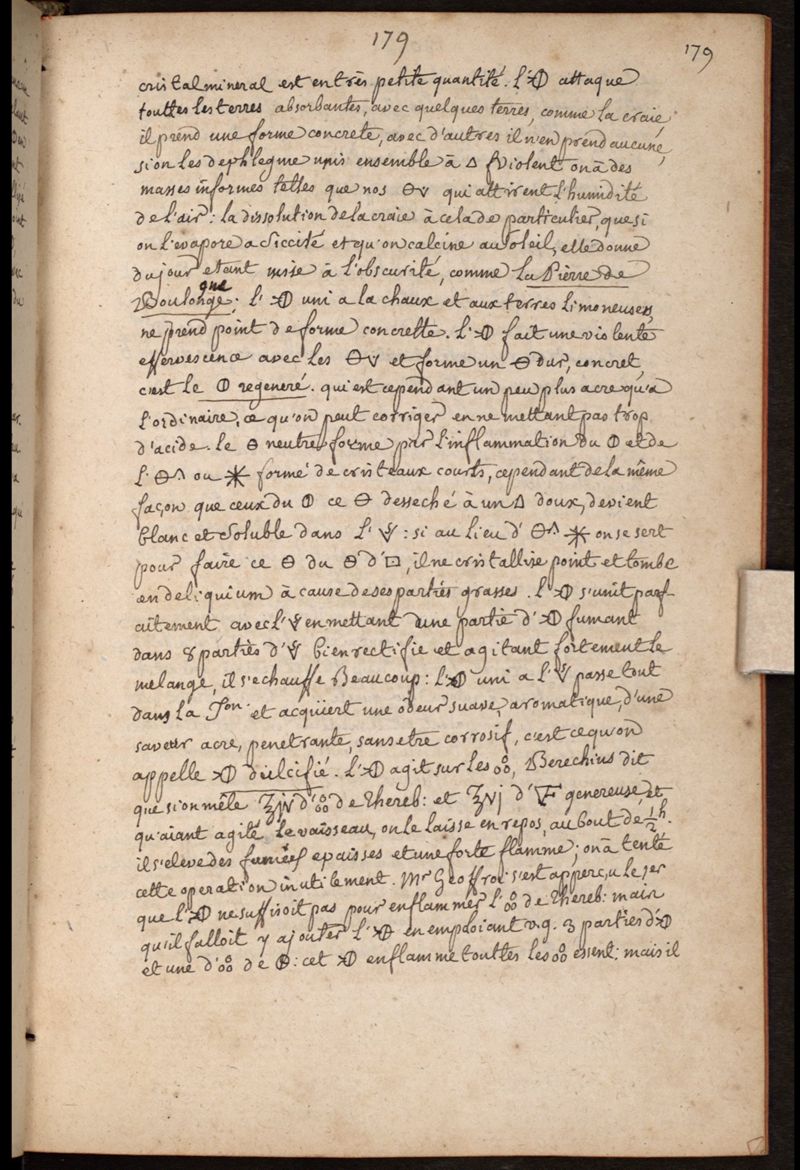 179
179
cristal mineral est en très petite quantité. L'🜅 attaque
touttes les terres absorbantes, avec quelques terres, comme la craie
il prend une forme concrete, avec d'autres il n'en prend aucune,
si on les dephlegme unis ensemble à 🜂 violent on a des
masses informes telles que nos 🜔 qui attirent l'humidité
de l'air: la dissolution de la craie à cela de particulier, que si
on l'evapore a siccité et qu'on calcine au soleil, elle donne
du jour etant mise à l'obscurité, comme la Pierre de
Boulongne; l' 🜅 uni a la chaux et aux terres limoneuses
ne prend point de forme concrette. L'🜅 fait une violente
effervescence avec les 🜔 et forme un 🜔 dur, concret,
c'est le 🜕 regeneré. qui est cependant un peu plus acre qu'a
l'oidinaire, ce qu'on peut corriger en ne mettant pas trop
d'acide. le 🜔 neutre forme par l'inflammation du 🜕 et de
l' 🜔 ou ✳ forme de cristeaux courts, cependant de la même
façon que ceux du 🜕 ce 🜔 desseché à un 🜂 doux, devient
blanc et soluble dans l' : si au lieu d' 🜔 ✳ on se sert
pour faire ce 🜔 du 🜔 d'□, il ne cristallise point et tombe
en deliquium à cause de ses parties grasses. L'🜅 s'unit parf
aitement avec l' en mettant une partie d'🜅 fumant
dans 8 parties d' bien rectifie et agitant fortement le
melange, il s'echauffe Beaucoup: l'🜅 uni a l' passe tout
dans la Jon et acquiert une odeur suave, aromatique, d'une
saveur acre, penetrante, sans etre corrosif, c'est ce qu'on
appelle 🜅 dulcifié. L'🜅 agit sur les , Berechius dit
que si on mêle d' de thereb: et d' genereuse, et
qu'aiant agité le vaisseau, on le laisse en repos, au bout de ½ h.
il s'eleve des fumées epaisses et une forte flamme; on a tenté
cette operation inutilement. Mr Geoffroi s'est apperçu le 1er
que l'🜅 ne suffisoit pas pour enflammer l' de thereb: mais
qu'il falloit y ajouter l' en emploiant v.g. 3 parties d'🜅
et une d' de : cet 🜅 enflamme touttes les essent: mais il